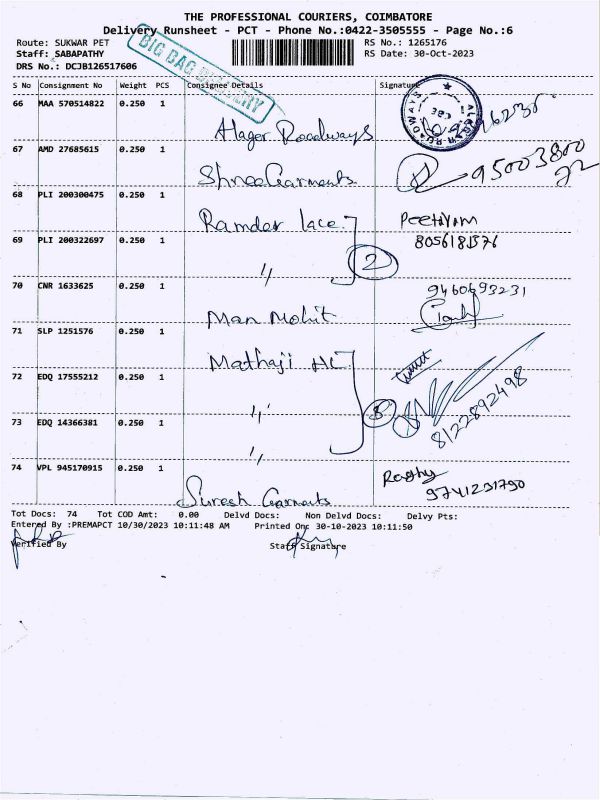 THE PROFESSIONAL COURIERS, COIMBATORE
Delivery Runsheet - PCT - Phone No.:0422-3505555 - Page No.:6
Route: SUKWAR PET
RS No.: 1265176
Staff: SABAPATHY
RS Date: 30-Oct-2023
DRS No.: DCJB126517606
BIG BAG DELIVERY
S No Consignment No Weight PCS Consignee Details Signature
66 MAA 570514822 0.250 1
Alager Roadways
67 AMD 27685615 0.250 1
Shree Garments
68 PLI 200300475 0.250 1
Ramdev lace
69 PLI 200322697 0.250 1
8056181576
" 2
70 CNR 1633625 0.250 1
9460693231
Man Mohit
71 SLP 1251576 0.250 1
Mathaji HL
72 EDQ 17555212 0.250 1
"
8122892498
73 EDQ 14366381 0.250 1
"
74 VPL 945170915 0.250 1
9741231790
Suresh Garments
Tot Docs: 74 Tot COD Amt: 0.00 Delvd Docs: Non Delvd Docs: Delvy Pts:
Entered By :PREMAPCT 10/30/2023 10:11:48 AM Printed On: 30-10-2023 10:11:50
Verified By Staff Signature